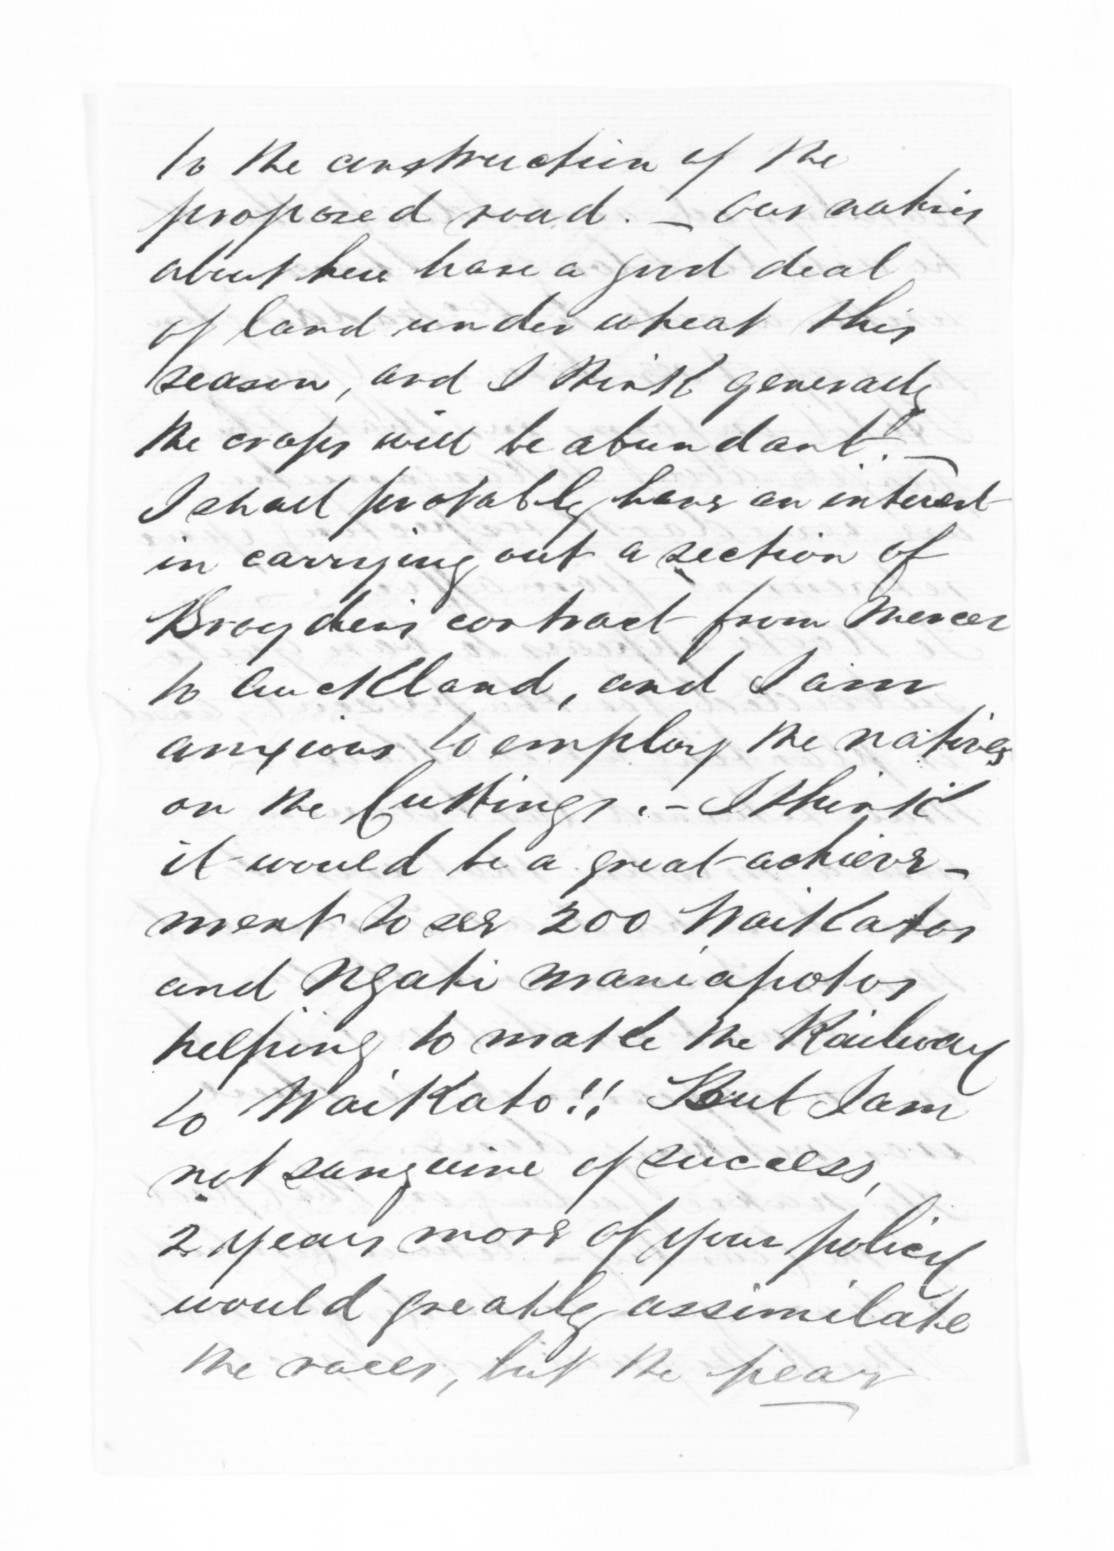 to the construction of the
proposed road. – Our natives
about here have a good deal
of land under wheat this
season, and I think generally
the crops will be abundant! –
I shall probably have an interest
in carrying out a section of
Brogden's contract from Mercer
to Auckland, and I am
anxious to employ the natives
on the Cuttings. – I think
it would be a great achieve-
ment to see 200 Waikatos
and Ngati maniapotos
helping to make the Railway
to Waikato!! But I am
not sanguine of success,
2 years more of your policy
would greatly assimilate
the races, but the pear